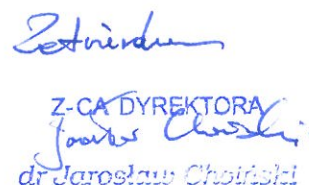 Zatwierdzam
Z-CA DYREKTORA
Jarosław Choiński
dr Jarosław Choiński